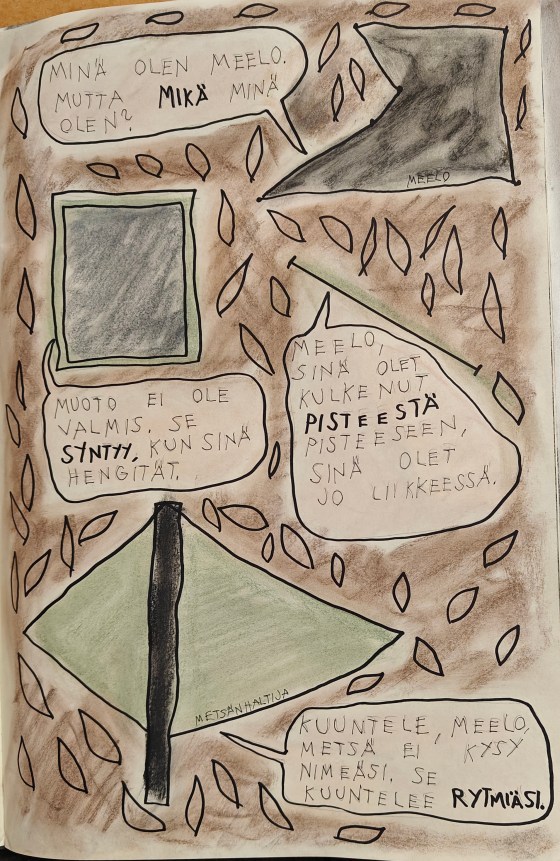 MINÄ OLEN MEELO.
MUTTA MIKÄ MINÄ
OLEN?
MEELO
MEELO,
SINÄ OLET
KULKENUT
PISTEESTÄ
PISTEESEEN,
SINÄ OLET
JO LIIKKEESSÄ.
MUOTO EI OLE
VALMIS. SE
SYNTYY, KUN SINÄ
HENGITÄT.
METSÄNHALTIJA
KUUNTELE, MEELO,
METSÄ EI KYSY
NIMEÄSI. SE
KUUNTELEE RYTMIÄSI.